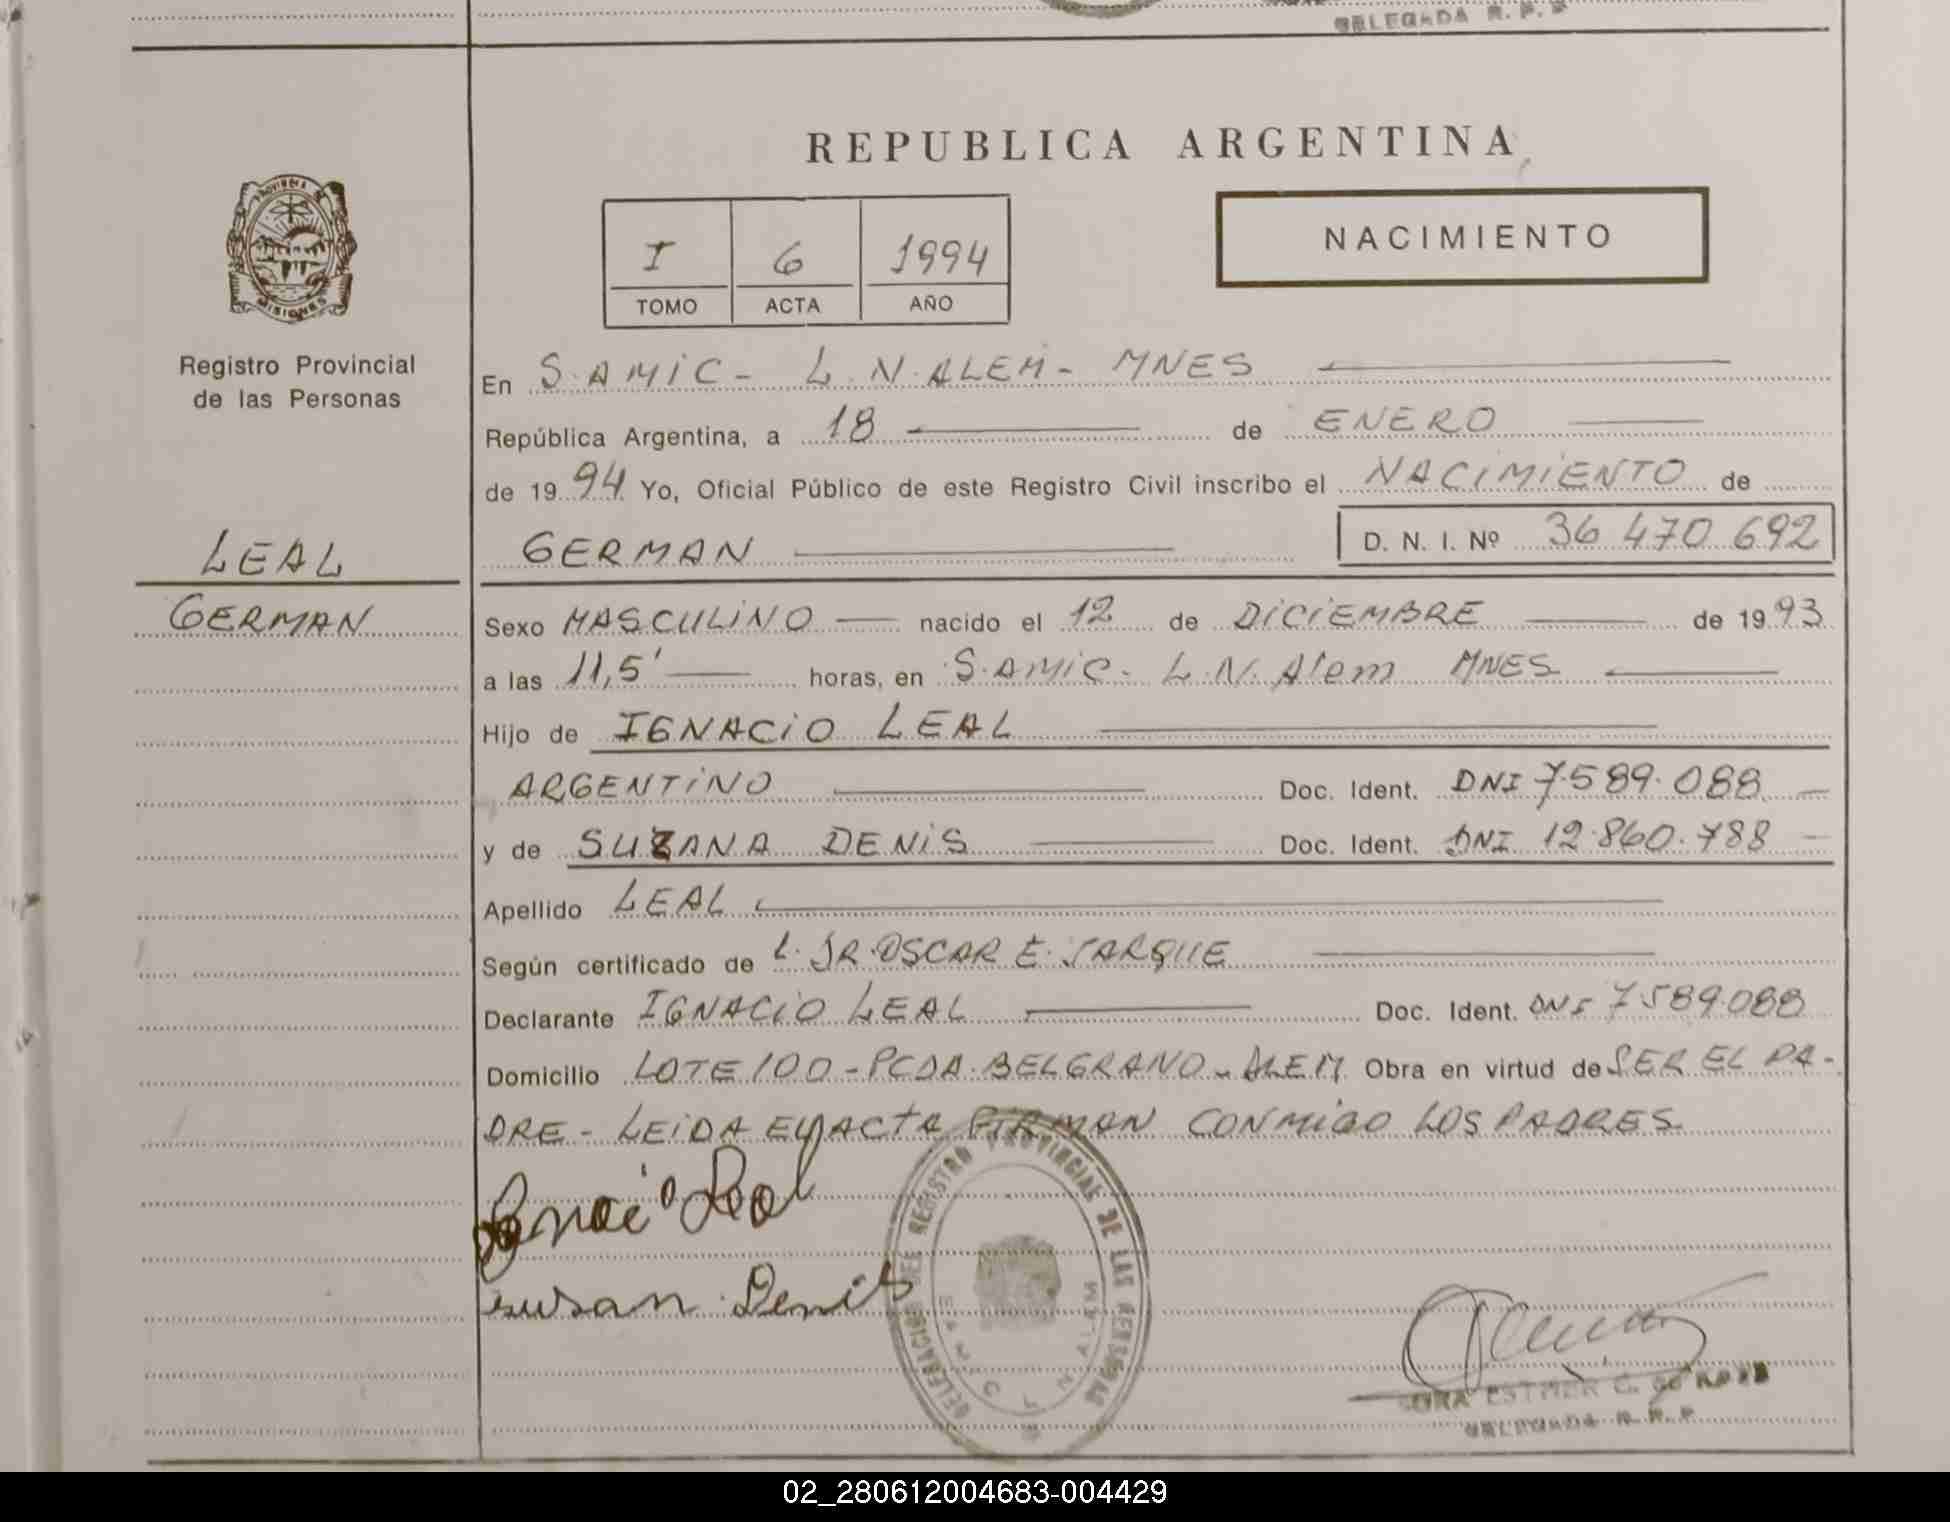 DELEGADA R. P. P
REPUBLICA ARGENTINA
PROVINCIA DE
MISIONES
I 6 1994
TOMO ACTA AÑO
NACIMIENTO
Registro Provincial
de las Personas
En S. AMIC - L. N. ALEM - MNES
República Argentina, a 18 de ENERO
de 19 94 Yo, Oficial Público de este Registro Civil inscribo el NACIMIENTO de
GERMAN D. N. I. Nº 36 470 692
LEAL
GERMAN
Sexo MASCULINO nacido el 12 de DICIEMBRE de 19 93
a las 11,5' horas, en S. AMIC - L. N. Alem MNES
Hijo de IGNACIO LEAL
ARGENTINO Doc. Ident. DNI 7.589.088
y de SUZANA DENIS Doc. Ident. DNI 12.860.788
Apellido LEAL
Según certificado de OSCAR E.
Declarante IGNACIO LEAL Doc. Ident. DNI 7.589.088
Domicilio LOTE 100 - PCDA. BELGRANO - ALEM Obra en virtud de SER EL PA-
DRE - LEIDA EL ACTA FIRMAN CONMIGO LOS PADRES
Ignacio Leal
susan Denis
DELEGACION DEL REGISTRO PROVINCIAL DE LAS PERSONAS
L. N. ALEM
ESTHER C. de
DELEGADA R. P. P
02_280612004683-004429